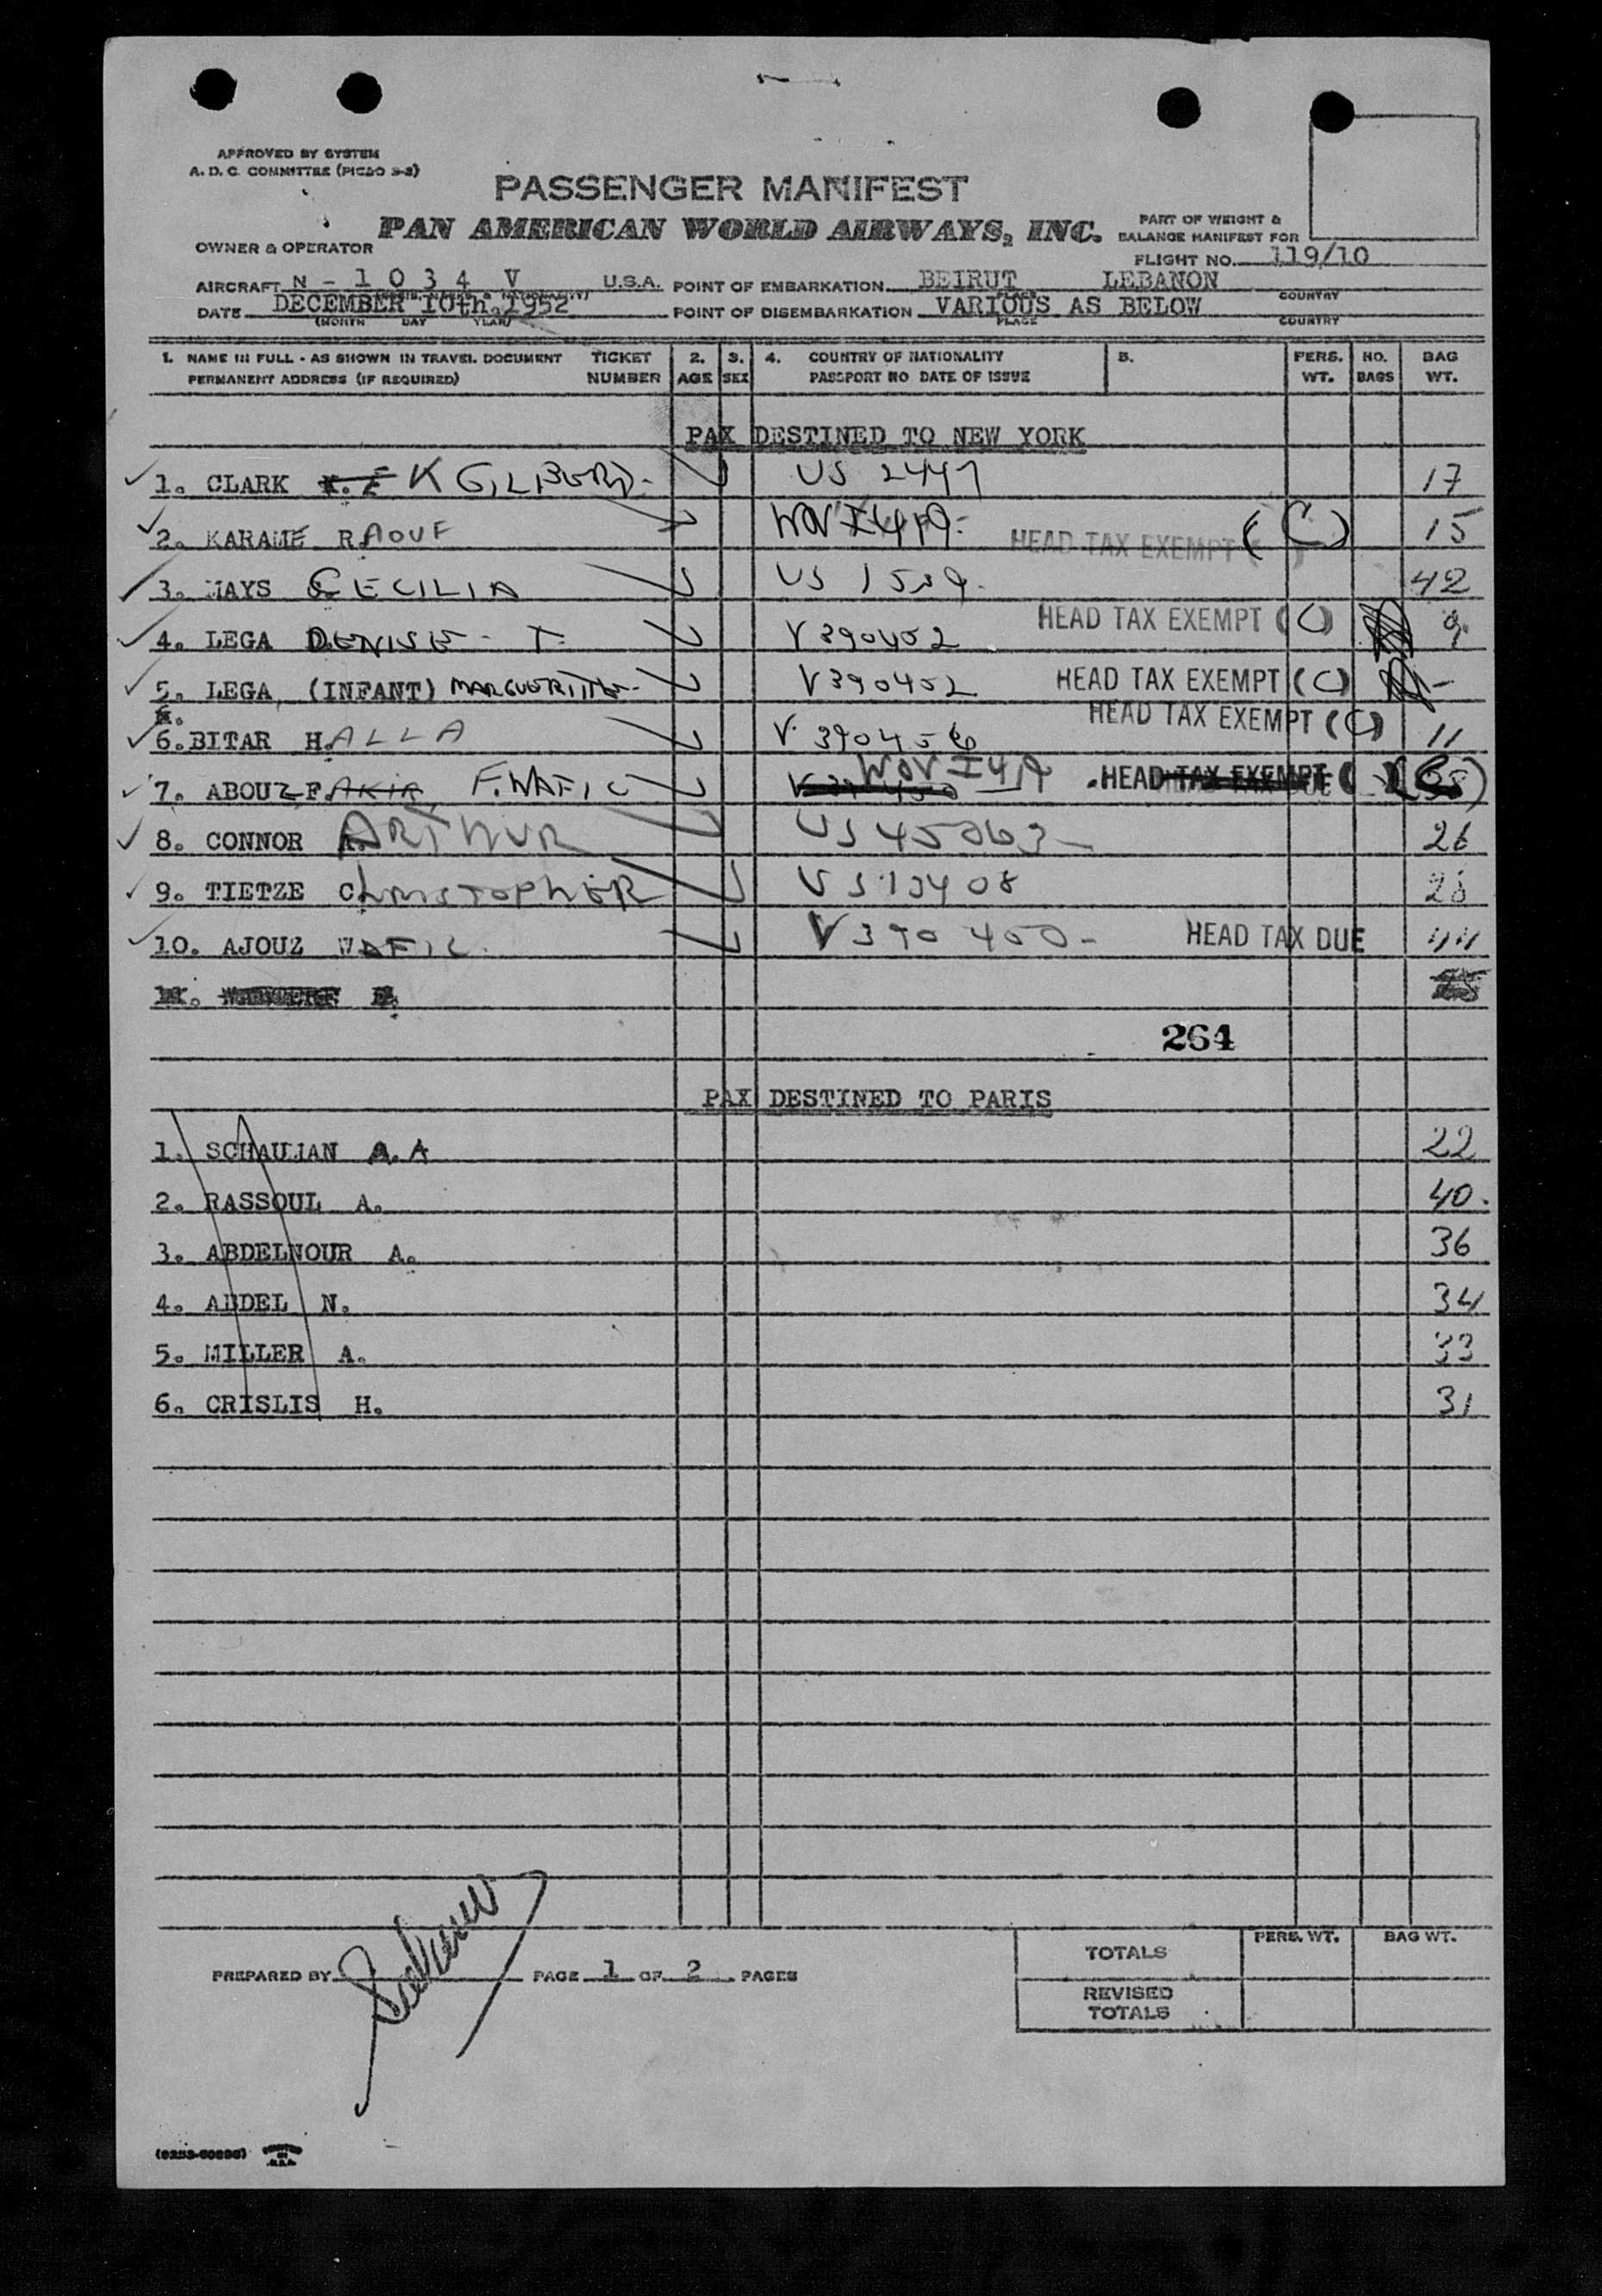 APPROVED BY SYSTEM
A. D. C. COMMITTEE (PICAO 3-3)
PASSENGER MANIFEST
PAN AMERICAN WORLD AIRWAYS, INC.
OWNER & OPERATOR
PART OF WEIGHT &
BALANCE MANIFEST FOR
FLIGHT NO. 119/10
AIRCRAFT N - 1 0 3 4 V U.S.A. POINT OF EMBARKATION BEIRUT LEBANON
PLACE COUNTRY
DATE DECEMBER 10th, 1952 POINT OF DISEMBARKATION VARIOUS AS BELOW
(MONTH DAY YEAR) PLACE COUNTRY
1. NAME IN FULL - AS SHOWN IN TRAVEL DOCUMENT TICKET 2. 3. 4. COUNTRY OF NATIONALITY 5. PERS. NO. BAG
PERMANENT ADDRESS (IF REQUIRED) NUMBER AGE SEX PASSPORT NO DATE OF ISSUE WT. BAGS WT.
PAX DESTINED TO NEW YORK
1. CLARK K US 2447 17
2. KARAME RAOUF HEAD TAX EXEMPT (C) 15
3. MAYS CECILIA US 1539 42
4. LEGA DENISE - T. V390452 HEAD TAX EXEMPT (C) 9
5. LEGA (INFANT) MARGUERITTE V390452 HEAD TAX EXEMPT (C) -
6. BITAR HALLA V. 390456 HEAD TAX EXEMPT (C) 11
7. ABOUZFAKIR F. WAFIC HEAD TAX EXEMPT
8. CONNOR ARTHUR US 45063 26
9. TIETZE CHRISTOPHER US 13408 28
10. AJOUZ WAFIC V390450 - HEAD TAX DUE 44
264
PAX DESTINED TO PARIS
1. SCHAUJAN A. A 22
2. RASSOUL A. 40.
3. ABDELNOUR A. 36
4. ABDEL N. 34
5. MILLER A. 33
6. CRISLIS H. 31
PREPARED BY PAGE 1 OF 2 PAGES
PERS. WT. BAG WT.
TOTALS
REVISED
TOTALS
PRINTED
IN
U.S.A.